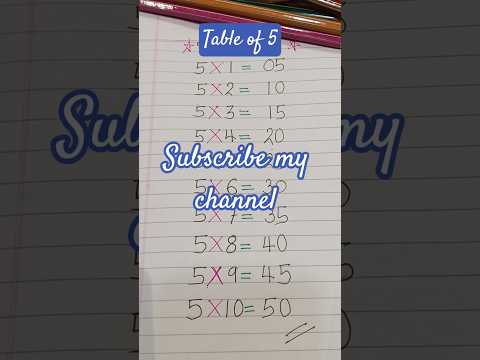 Table of 5
5 X 1 = 05
5 X 2 = 10
5 X 3 = 15
5 X 4 = 20
Subscribe my
5 X 6 = 30
channel
5 X 7 = 35
5 X 8 = 40
5 X 9 = 45
5 X 10 = 50